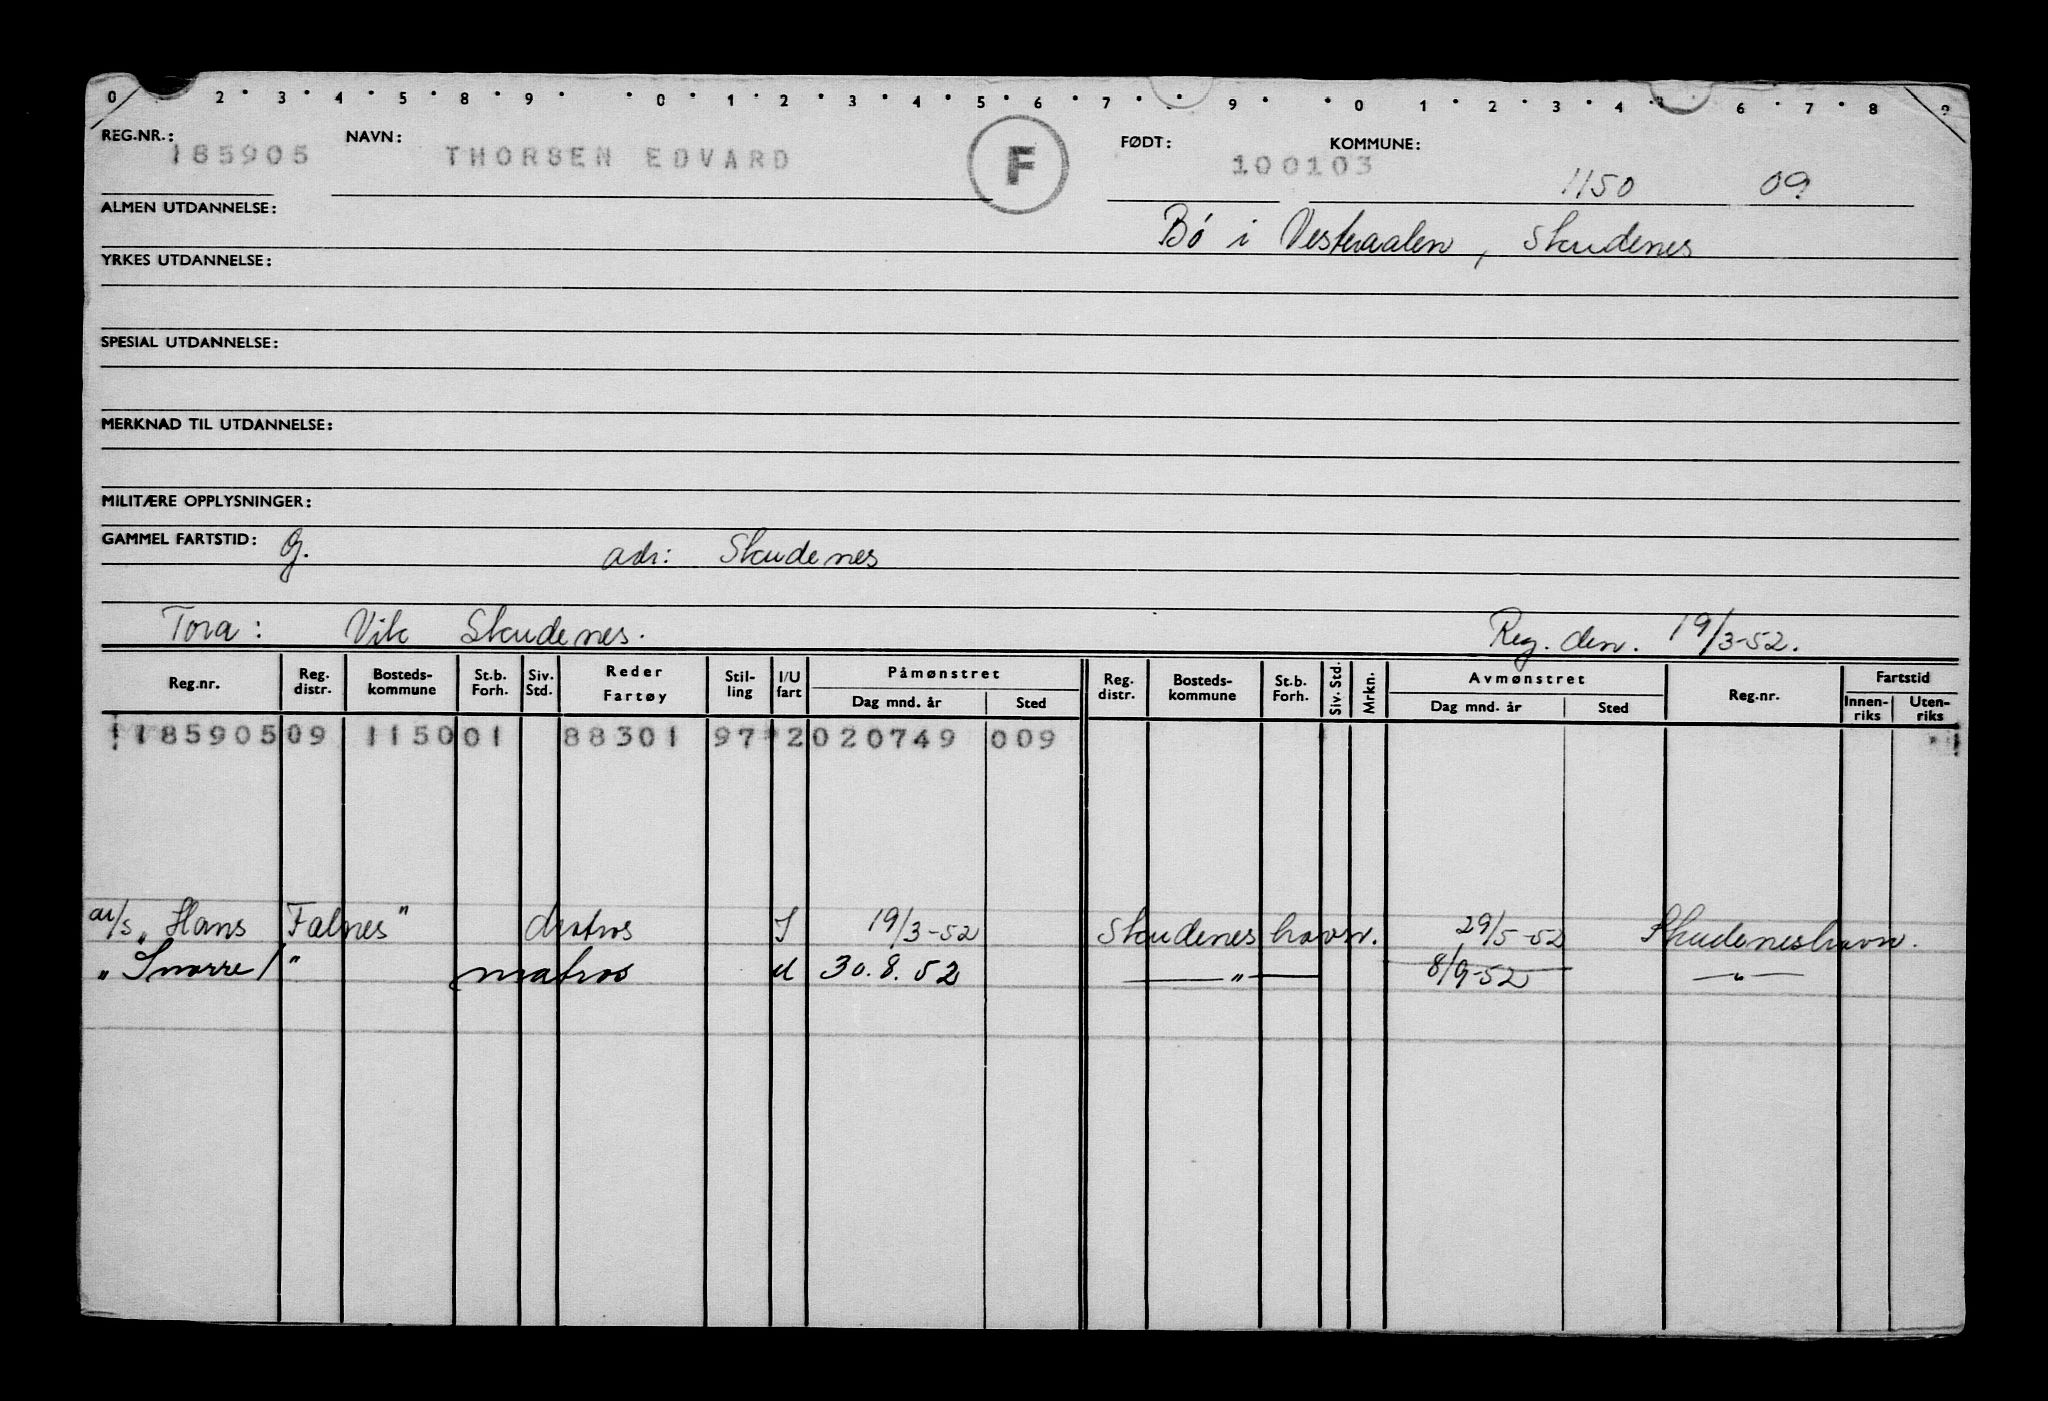 0 2 3 4 5 8 9 0 1 2 3 4 5 6 7 9 0 1 2 3 4 6 7 8 9
REG.NR.: 185905 NAVN: THORSEN EDVARD F FØDT: 100103 KOMMUNE: 1150 09
ALMEN UTDANNELSE: Bø i Vesteraalen, Skudenes
YRKES UTDANNELSE:
SPESIAL UTDANNELSE:
MERKNAD TIL UTDANNELSE:
MILITÆRE OPPLYSNINGER:
GAMMEL FARTSTID: G. adr: Skudenes
Tora: Vik Skudenes. Reg. den. 19/3-52.
Reg.nr. Reg. distr. Bosteds-kommune St.b. Forh. Siv. Std. Reder Fartøy Stil-ling I/U fart Påmønstret Dag mnd. år Sted Reg. distr. Bosteds-kommune St.b. Forh. Siv. Std. Mrkn. Avmønstret Dag mnd. år Sted Reg.nr. Fartstid Innen-riks Uten-riks
118590509 115001 88301 97 2020749 009
"Hans Falnes" I 19/3-52 Skudeneshavn. 29/5-52 Skudeneshavn.
"Snorre I" matros U 30.8.52 — " — 8/9-52 — " —